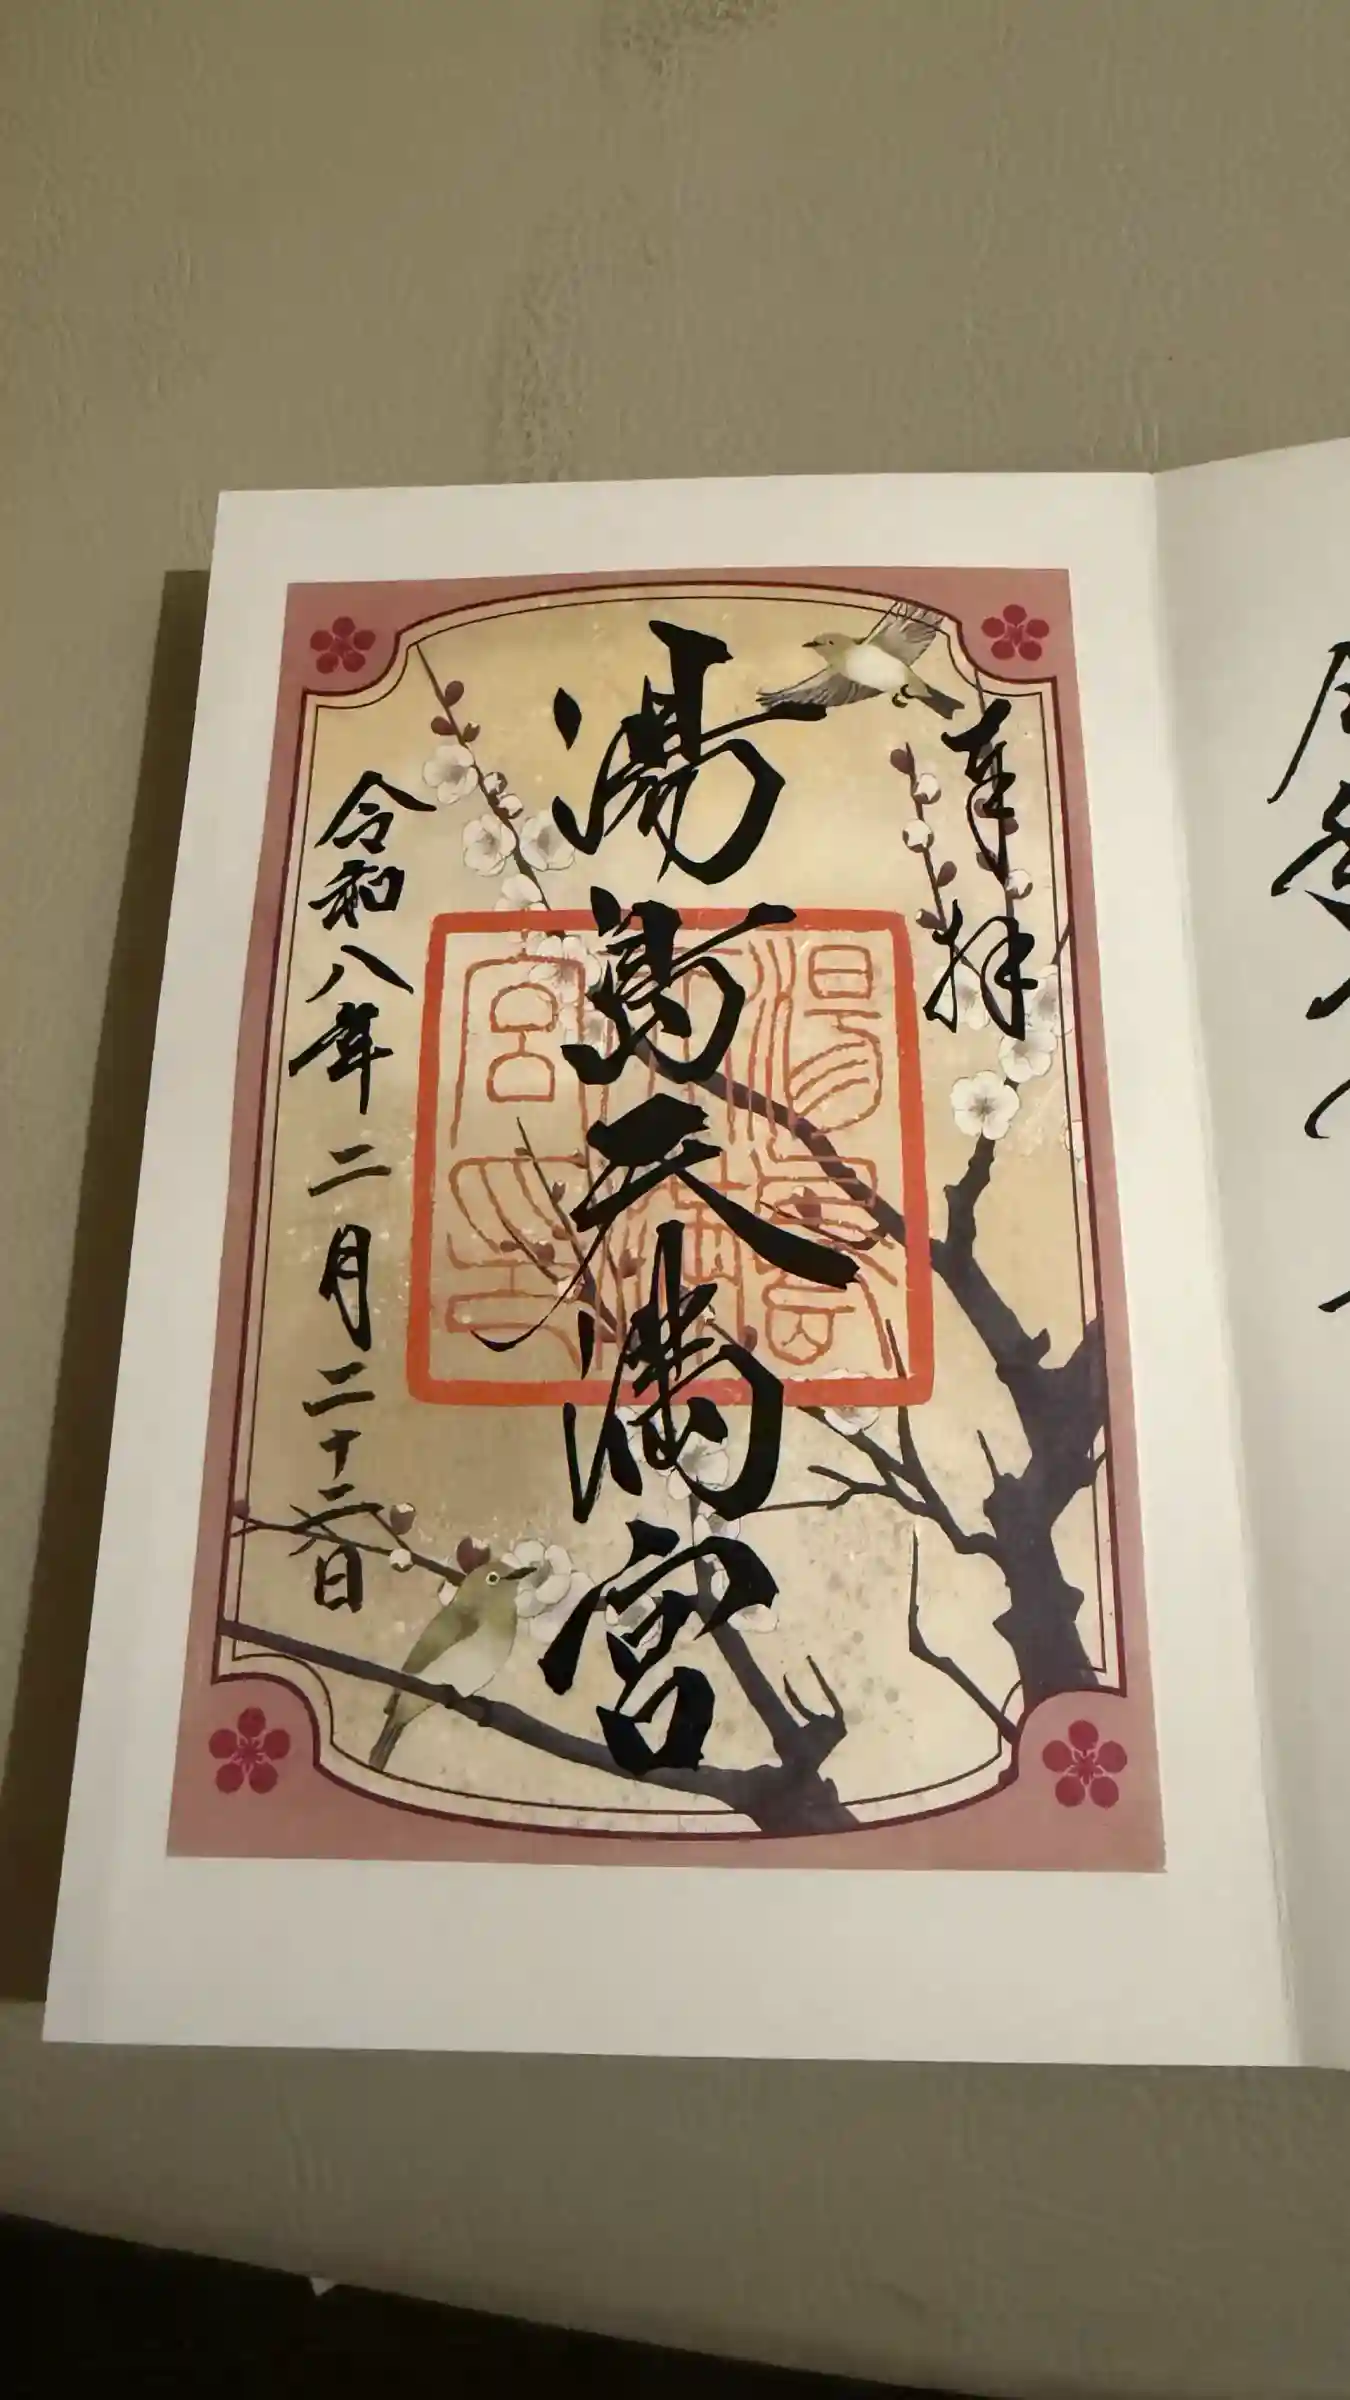 奉拝
湯島天満宮
令和八年二月二十二日
湯島天満宮印